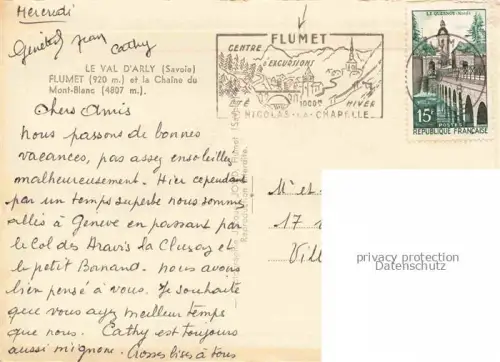 Mercredi
Jean
Cathy
LE VAL D'ARLY (Savoie)
FLUMET (920 m.) et la Chaîne du
Mont-Blanc (4807 m.).
Chers Amis
Nous passons de bonnes
vacances, pas assez ensoleillées
malheureusement. Hier cependant
par un temps superbe nous sommes
allés à Genève en passant par
le Col des Aravis La Clusaz et
le petit Bornand. nous avons
bien pensé à vous. Je souhaite
que vous ayez meilleur temps
que nous. Cathy est toujours
aussi mignonne. Grosses bises à tous
Reproduction interdite.
FLUMET
CENTRE
EXCURSIONS
ÉTÉ
1000m
HIVER
NICOLAS-LA-CHAPELLE
LE QUESNOY (NORD)
15F
POSTES
REPUBLIQUE FRANÇAISE
M et
17
Vill
privacy protection
Datenschutz